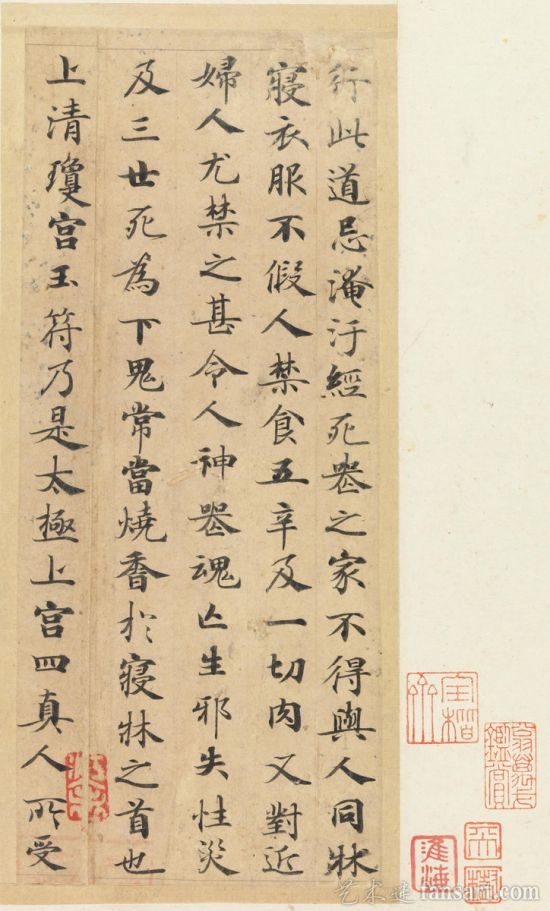 行此道忌淹汙經死喪之家不得與人同牀
寢衣服不假人禁食五辛及一切肉又對近
婦人尤禁之甚令人神喪魂亡生邪失性災
及三世死為下鬼常當燒香於寢牀之首也
上清瓊宮玉符乃是太極上宮四真人所受
鑑賞
艺术迷fansart.com